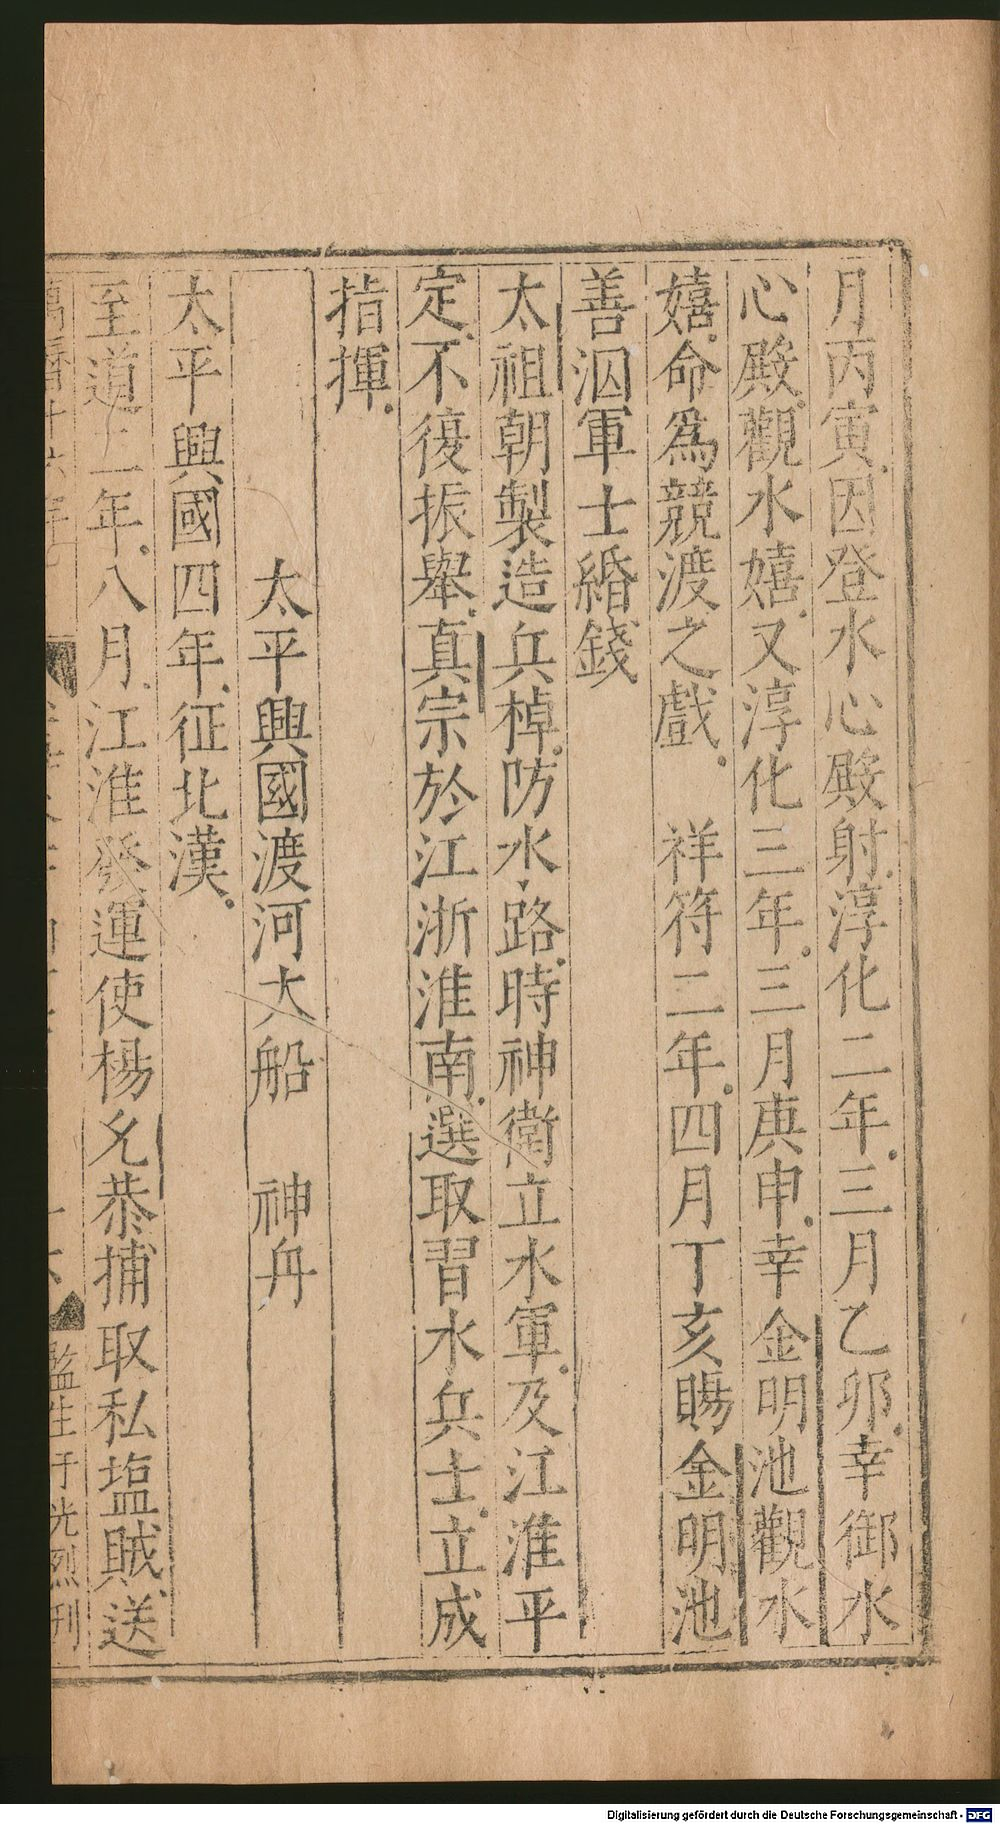 月丙寅因登水心殿射淳化二年三月乙卯幸御水
心殿觀水嬉又淳化三年三月庚申幸金明池觀水
嬉命爲競渡之戲　祥符二年四月丁亥賜金明池
善泅軍士緡錢
太祖朝製造兵棹防水路時神衛立水軍及江淮平
定不復振舉真宗於江浙淮南選取習水兵士立成
指揮
太平興國渡河大船　神舟
太平興國四年征北漢
至道二年八月江淮發運使楊允恭捕取私塩賊送
監生于光烈刊
Digitalisierung gefördert durch die Deutsche Forschungsgemeinschaft - DFG